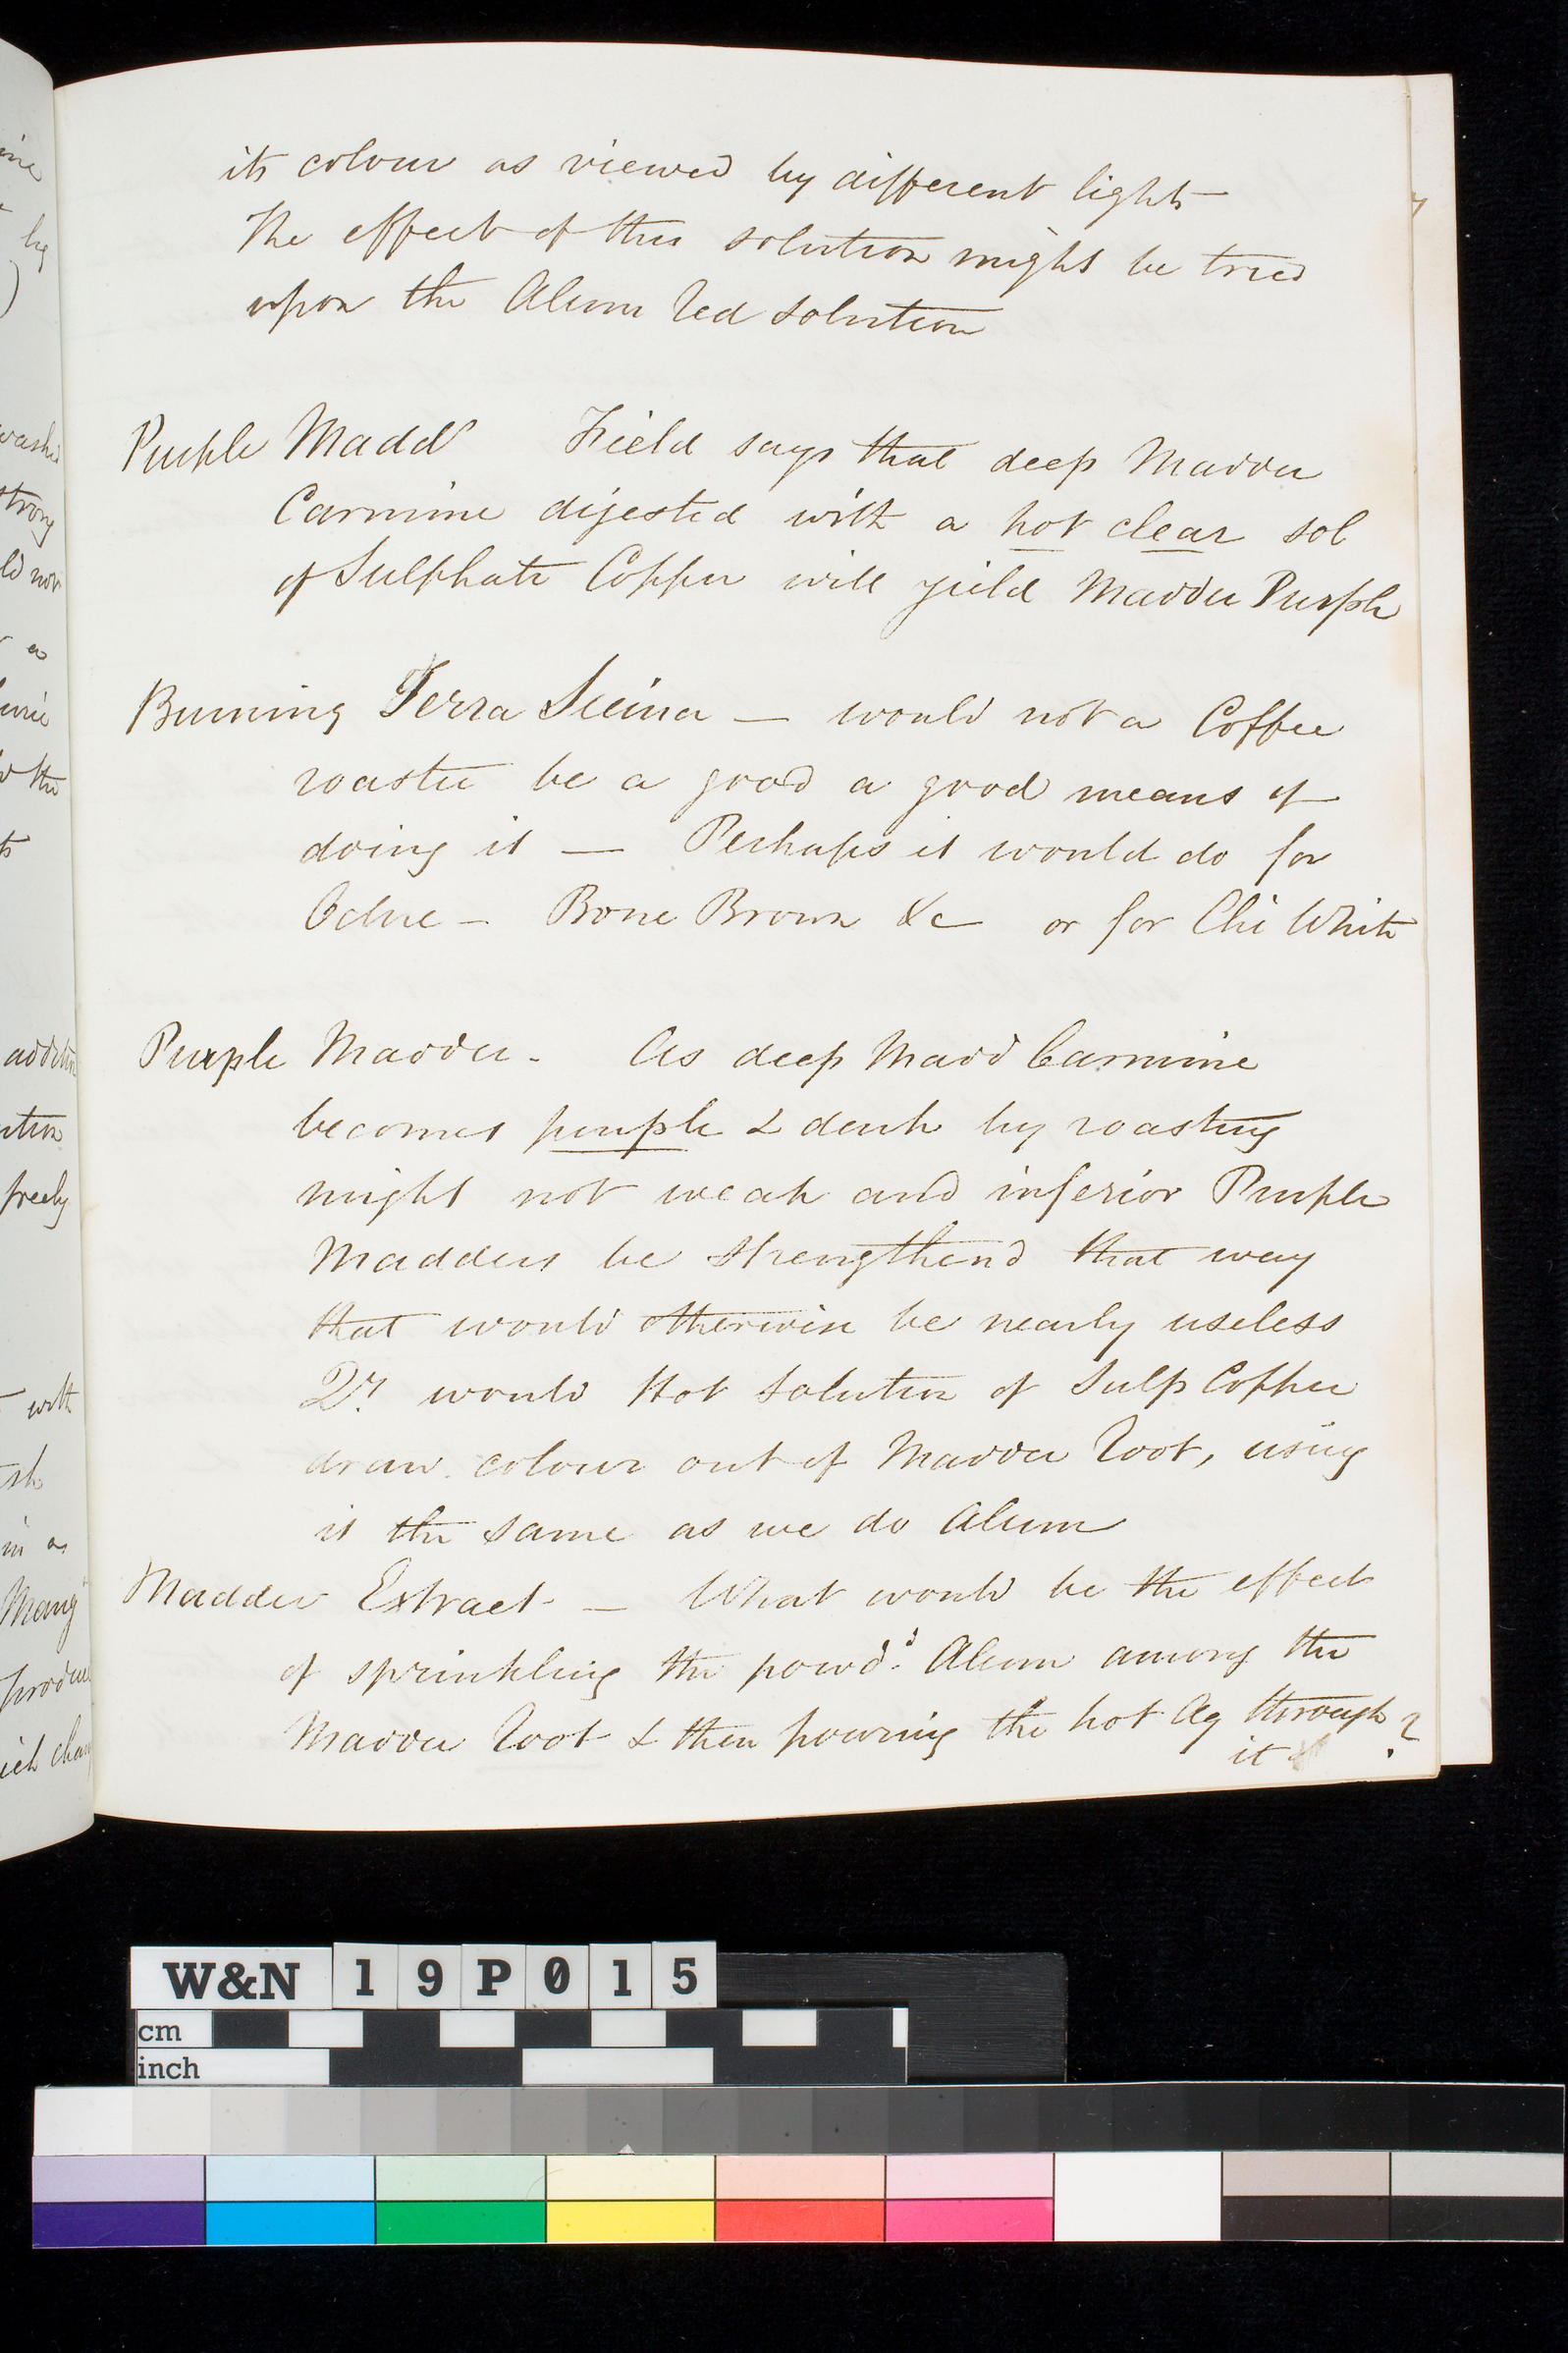 its colour as viewed by different lights
The effect of this solution might be tried
upon the Alum Red solution
Purple Madd^r Field says that deep Madder
Carmine digested with a hot clear sol
of Sulphate Copper will yield Madder Purple
Burning Terra Sieina — would not a Coffee
roaster be a good a good means of
doing it — Perhaps it would do for
Ochre — Bone Brown &c or for Chi White
Purple Madder - As deep Madd Carmine
becomes purple & dark by roasting
might not weak and inferior Purple
Madders be strengthend that way
that would otherwise be nearly useless
Qy. would Hot Solution of Sulp Copper
draw colour out of Madder Root, using
it the same as we do Alum
Madder Extract — What would be the effect
of sprinkling the powd^d. Alum among the
Madder Root & then pouring the hot Aq through ?
it
ine
by
)
washed
strong
ld not
r a
the
addition
ution
freely
with
sh
in a
Mang
produ
ich chan
W&N 19P015
cm
inch